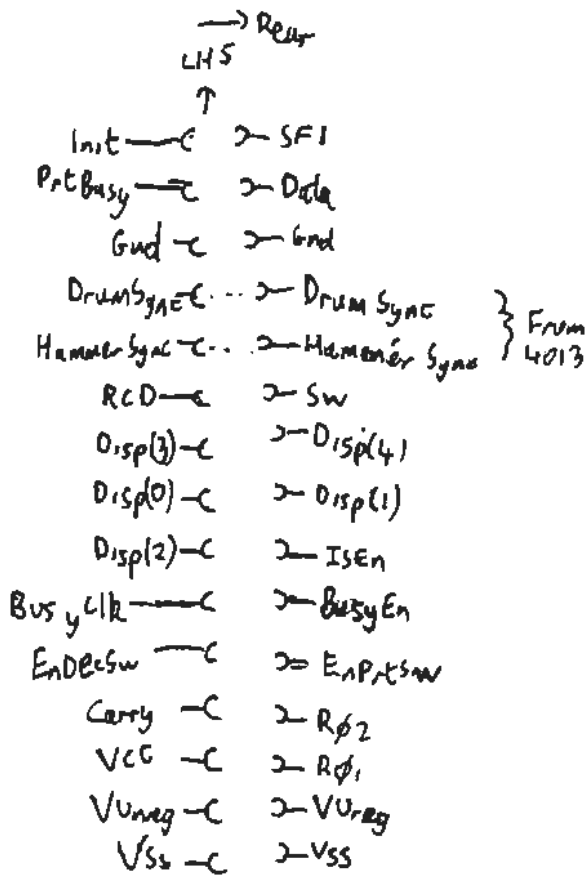 → Rear
LHS
↑
Init SFI
PrtBusy Data
Gnd Gnd
DrumSync ... Drum Sync
HammerSync ... Hammer Sync } From 4013
RCD SW
Disp(3) Disp(4)
Disp(0) Disp(1)
Disp(2) ISEn
BusyClk BusyEn
EnDecSw EnPrtSw
Carry RØ2
VCC RØ1
VUnreg VUreg
VSs VSS